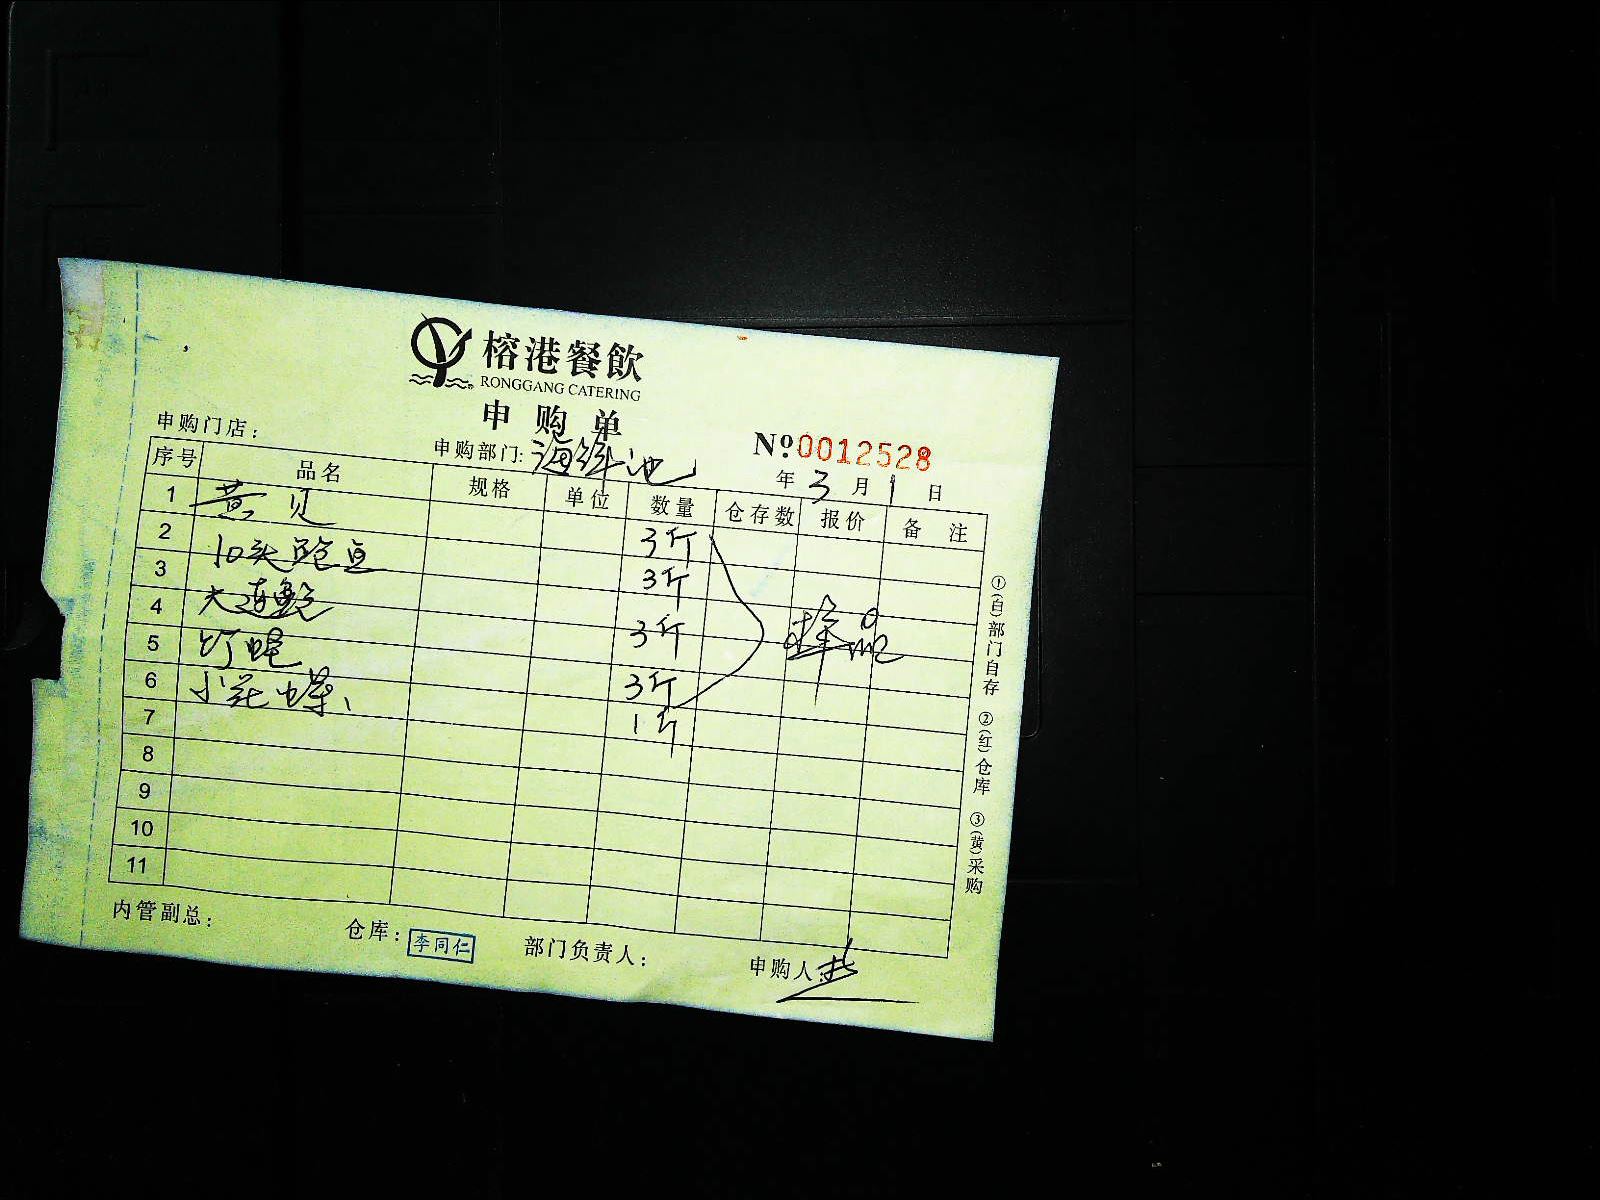 榕港餐飲
RONGGANG CATERING
申购单
申购门店：
申购部门: 海鲜池
Nº 0012528
年 3 月 1 日
序号 品名 规格 单位 数量 仓存数 报价 备 注
1 黄贝 3斤
2 10头鲍鱼 3斤
3 大连鲍 3斤
4 3斤
5 小花螺 1斤
6
7
8
9
10
11
样品
①(白)部门自存 ②(红)仓库 ③(黄)采购
内管副总： 仓库：李同仁 部门负责人： 申购人: